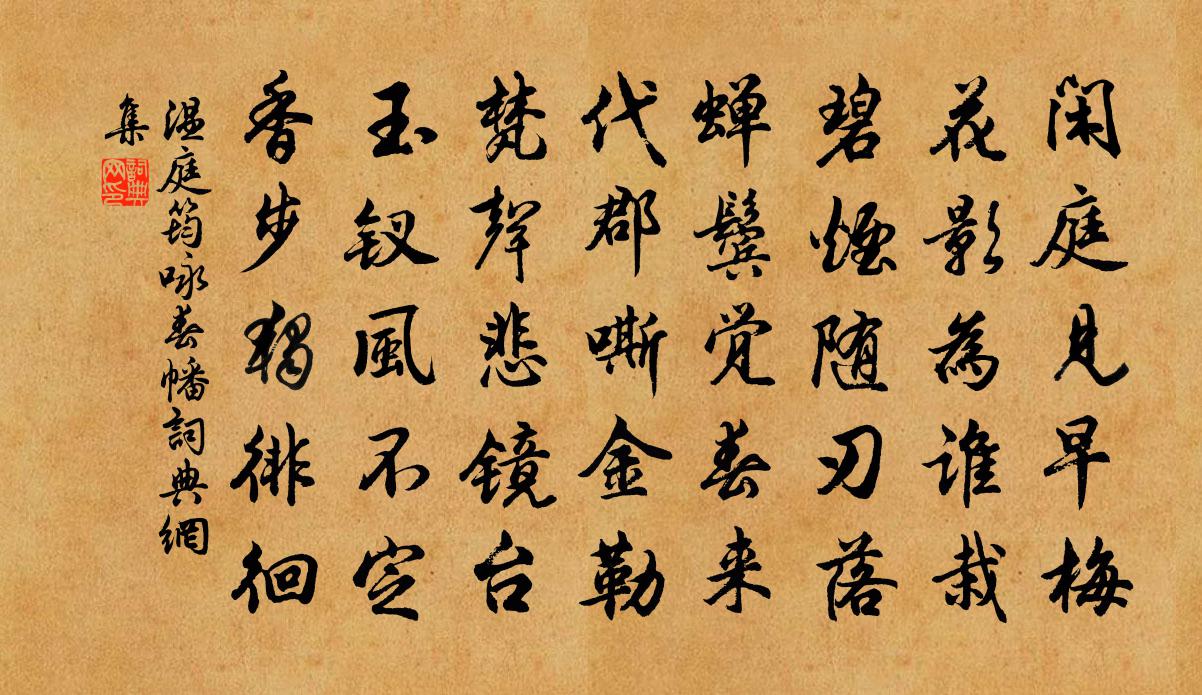 闲庭见早梅
花影為谁栽
碧煙随刃落
蝉鬓觉春来
代郡嘶金勒
梵声悲镜台
玉钗風不定
香步独徘徊
温庭筠咏春幡詞典網
集
詞典
网印